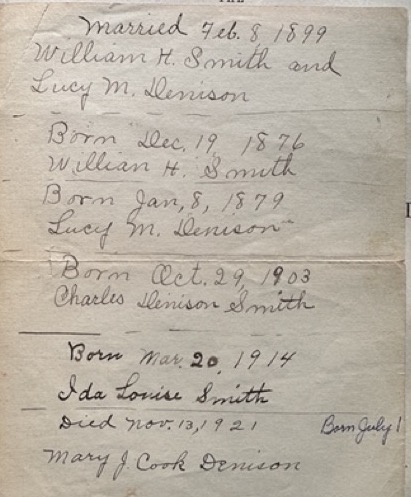 Married Feb. 8, 1899
William H. Smith and
Lucy M. Denison
Born Dec. 19 1876
Willian H. Smith
Born Jan, 8, 1879
Lucy M. Denison
Born Oct. 29, 1903
Charles Denison Smith
Born Mar. 20, 1914
Ida Louise Smith
Died Nov. 13, 1921
Born July 1
Mary J. Cook Denison